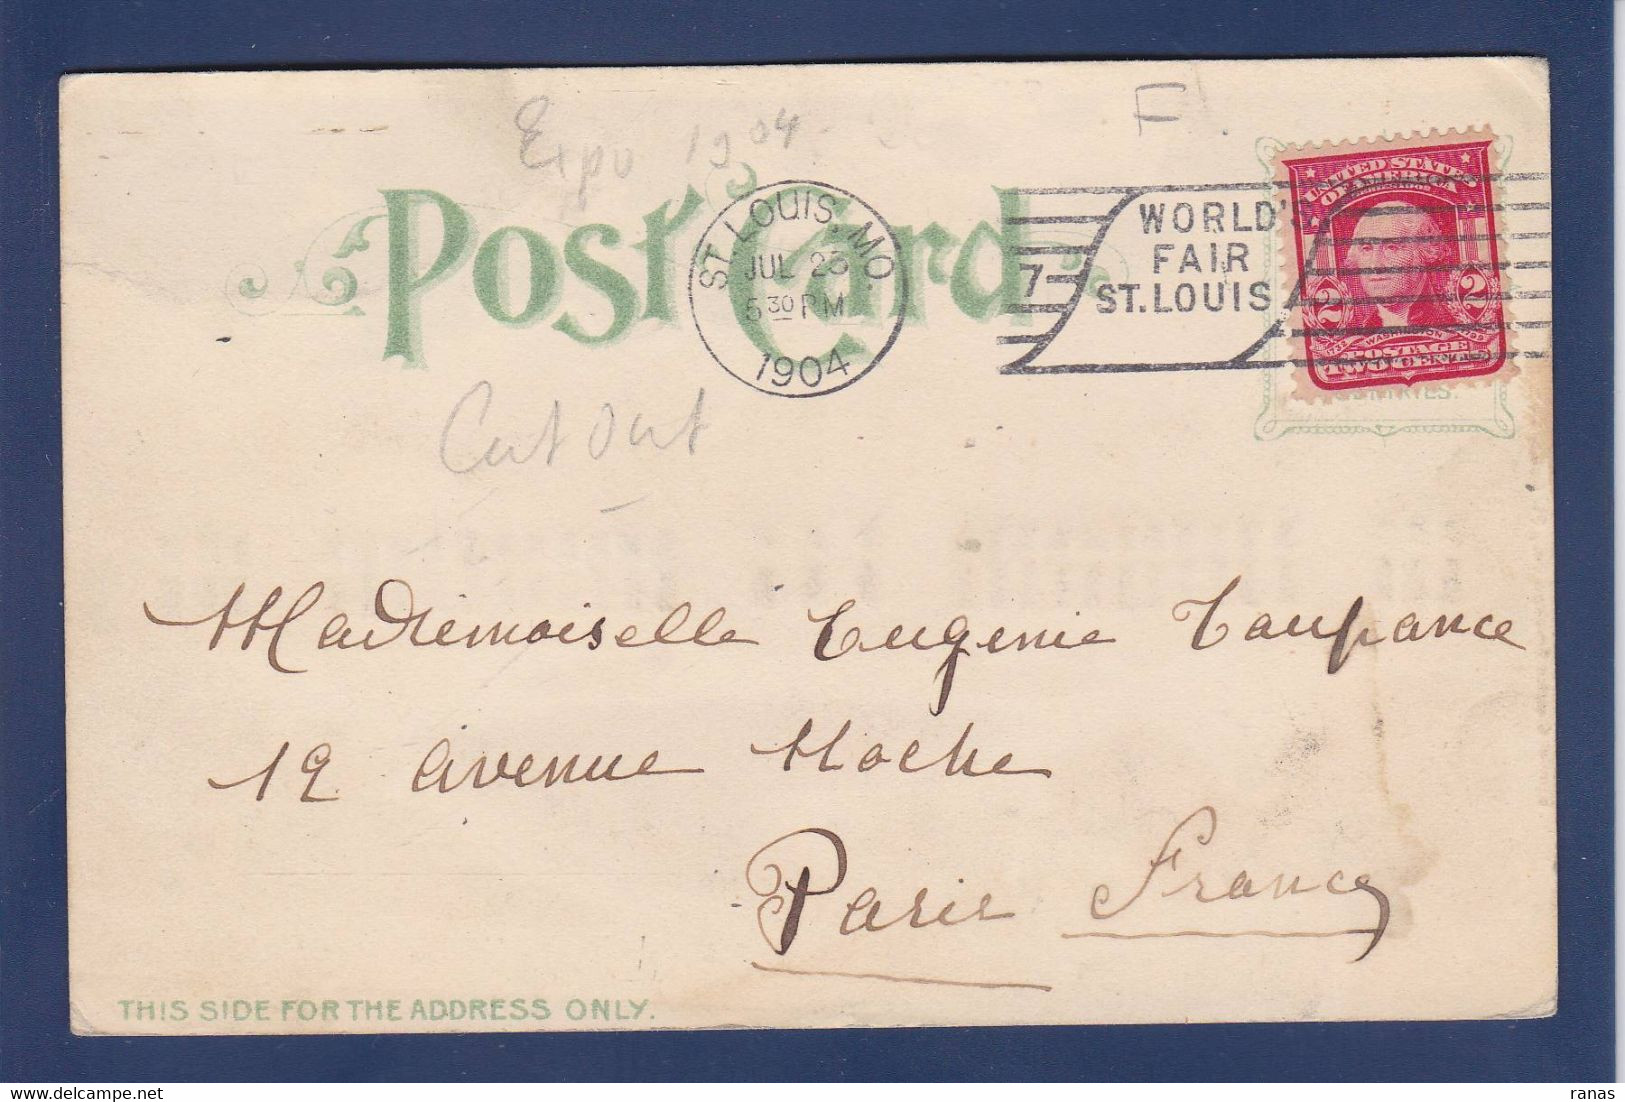 Expo 1904
F
Post Card
ST. LOUIS, MO.
JUL 25
5 30 PM
1904
7
WORLD'S
FAIR
ST. LOUIS
UNITED STATES
OF AMERICA
2 2
WASHINGTON
POSTAGE
TWO CENTS
Cut Out
Mademoiselle Eugenie Taupance
12 avenue Hoche
Paris France
THIS SIDE FOR THE ADDRESS ONLY.
ranas